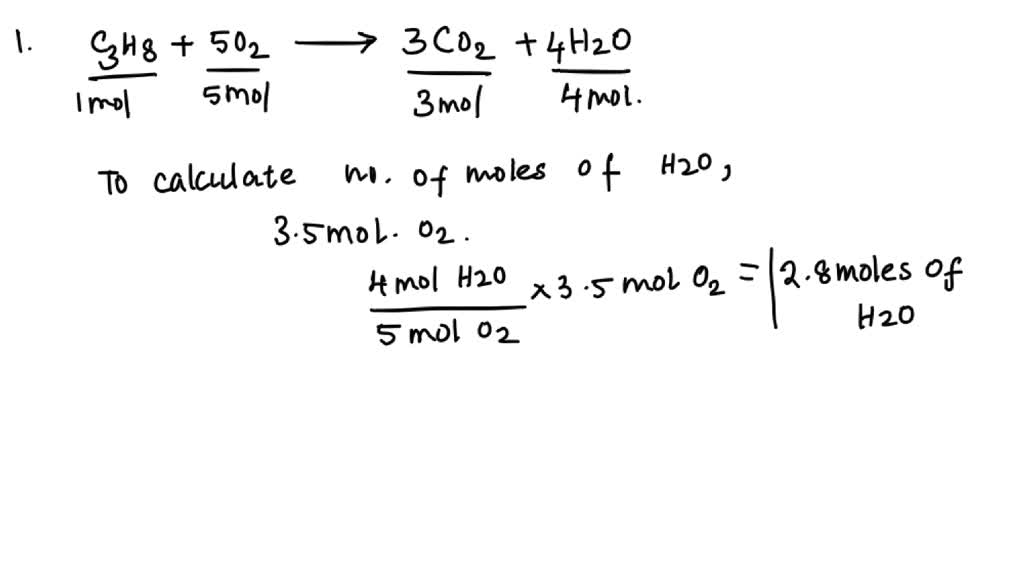 1. C3H8 + 5O2 ⟶ 3CO2 + 4H2O
1mol 5mol 3mol 4mol.
To calculate no. of moles of H2O,
3.5mol. O2.
4mol H2O / 5 mol O2 × 3.5 mol O2 = | 2.8moles of
H2O